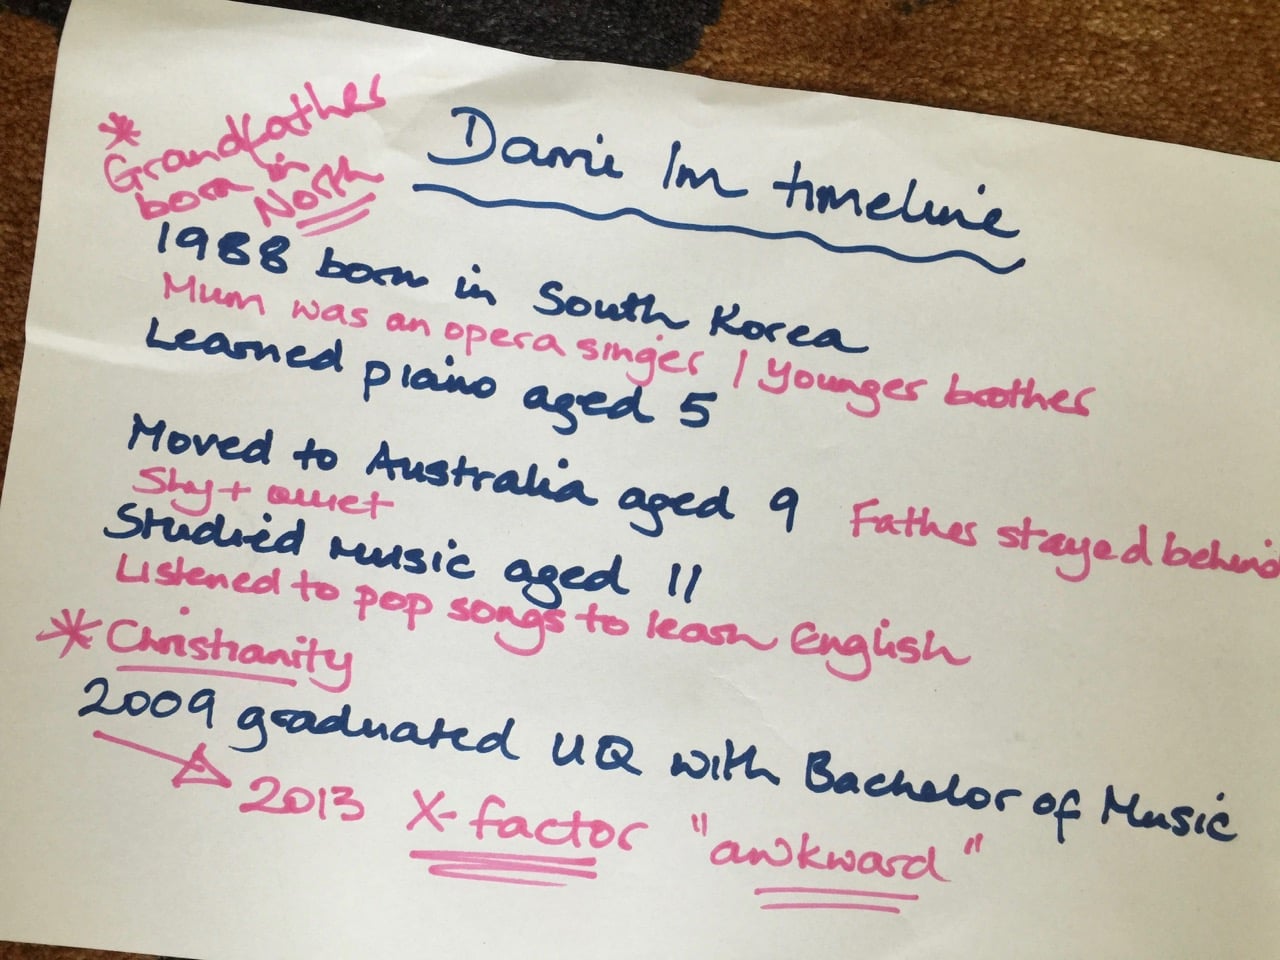 Dami Im timeline
* Grandfather
born in
North
1988 born in South Korea
Mum was an opera singer / Younger brother
Learned piano aged 5
Moved to Australia aged 9 Father stayed behind
Shy + quiet
Studied music aged 11
Listened to pop songs to learn English
* Christianity
2009 graduated UQ with Bachelor of Music
2013 X-factor "awkward"